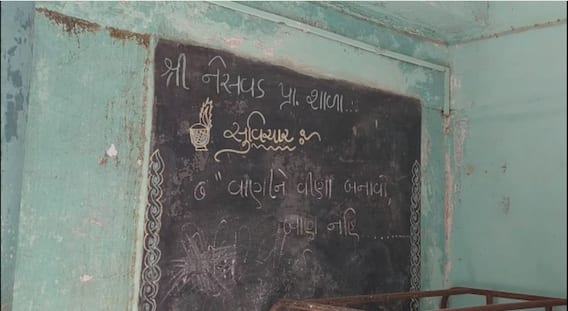 શ્રી નેસવડ પ્રા. શાળા...
સુવિચાર
" વાણીને વીણા બનાવો,
બાણ નહિ ........